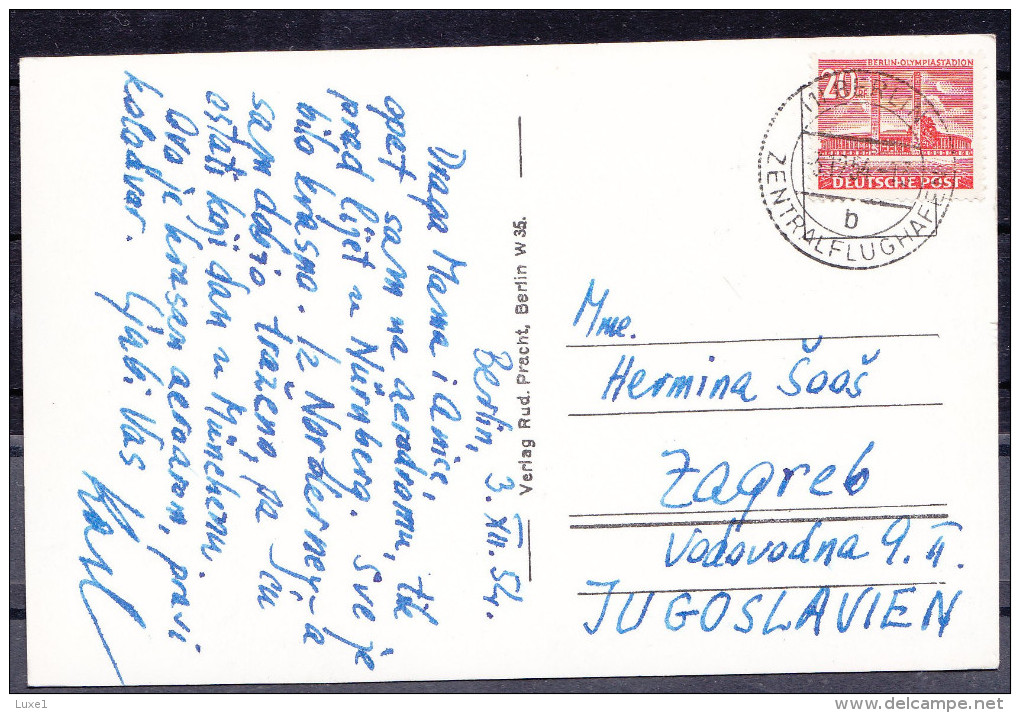 Berlin, 3. XII. 54.
Draga Mama i Amice,
opet sam na aerodromu, tik
pred ljet u Nürnberg. Sve je
bilo krasno. Iz Norderney-a
sam dobro traženo, pa ću
ostati koji dan u Münchenu.
Ovo je krasan aerodrom, pravi
kolodvor. Ljubi Vas
Karl
Verlag Rud. Pracht, Berlin W 35.
BERLIN-OLYMPIASTADION
20
DEUTSCHE POST
BERLIN
b
ZENTRALFLUGHAFEN
Mme.
Hermina Šooš
Zagreb
Vodovodna 9. II.
JUGOSLAVIEN
Luxe1
delcampe.net